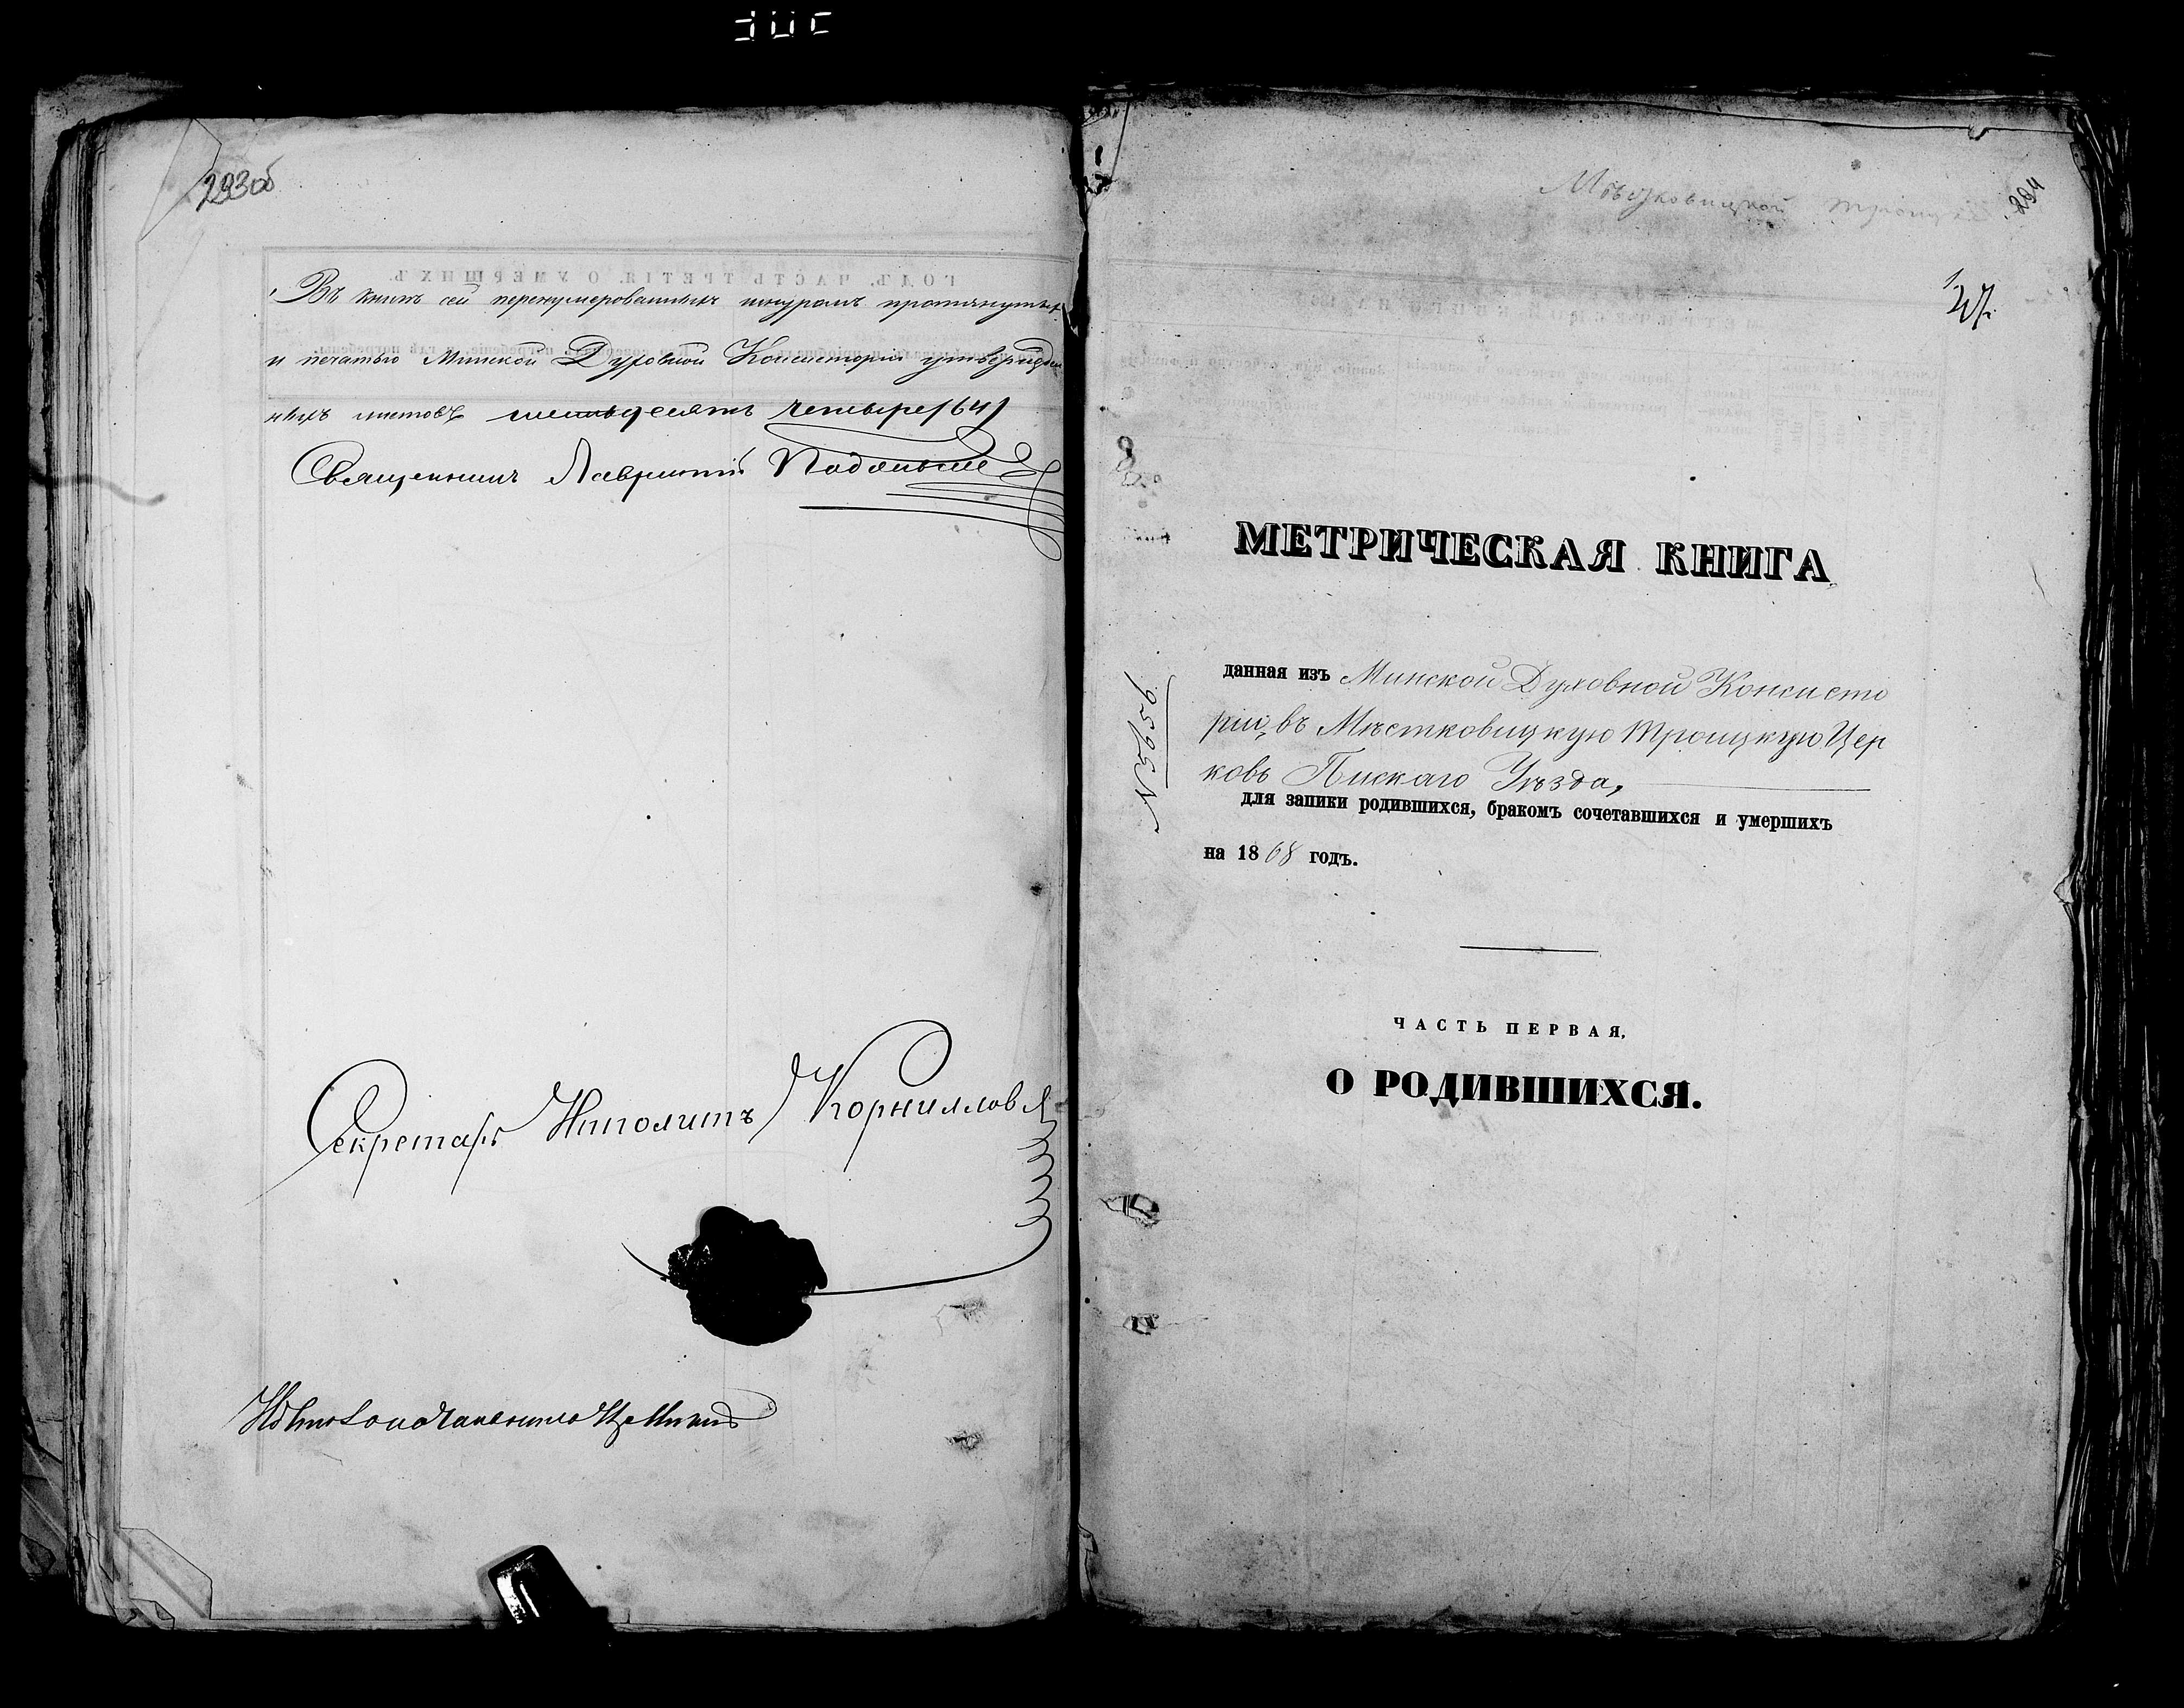 293об
Въ книгѣ сей перенумерованныхъ шнуромъ протянутыхъ
и печатью Минской Духовной Консисторіи утвержден
ныхъ листовъ шестьдесятъ четыре (64)
Священникъ Лаврентій
Секретарь Ипполитъ Корнилловъ
Мѣстковицкой Троиц
294
МЕТРИЧЕСКАЯ КНИГА
данная изъ Минской Духовной Консисто
ріи, въ Мѣстковицкую Троицкую Цер
ковь Пинскаго Уѣзда,
для записки родившихся, бракомъ сочетавшихся и умершихъ
на 1868 годъ.
№ 9595
ЧАСТЬ ПЕРВАЯ.
О РОДИВШИХСЯ.